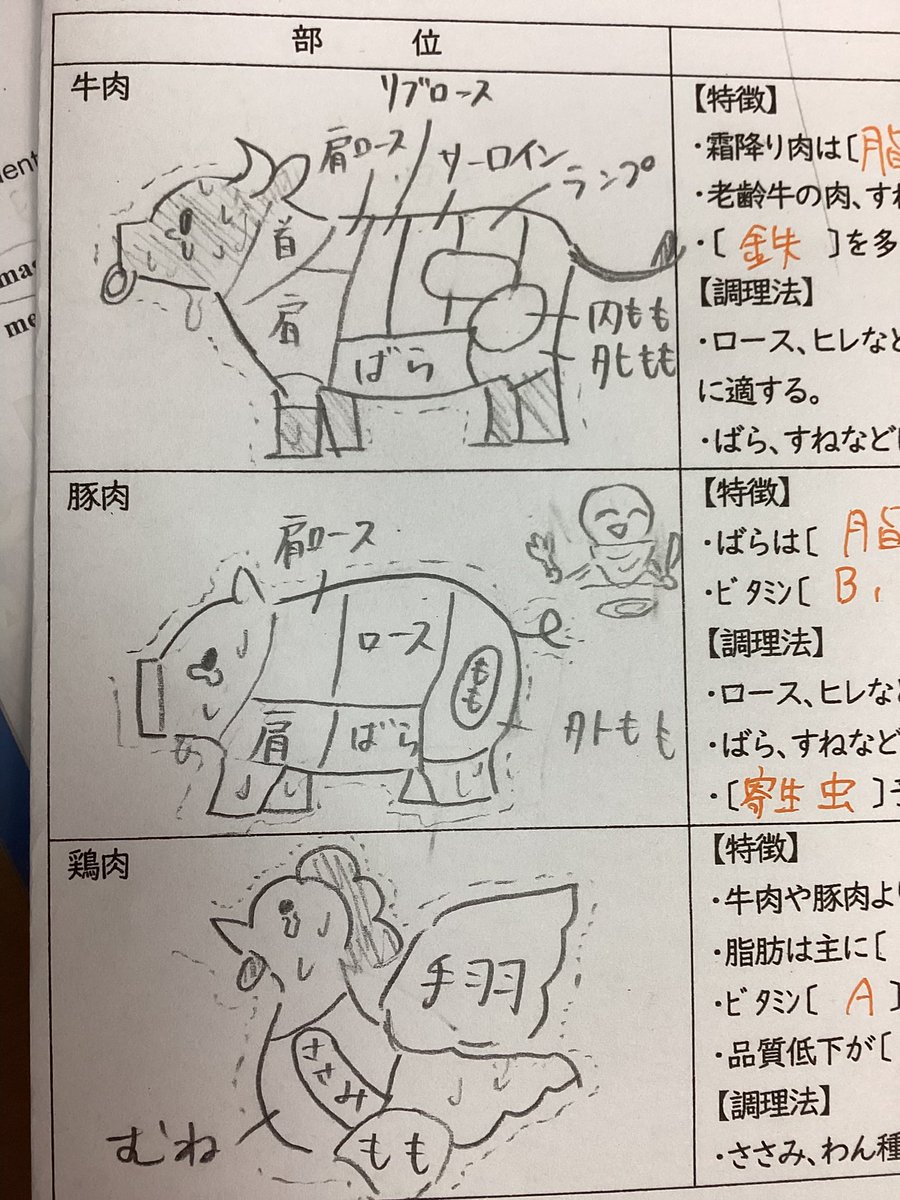 ent
mag
me
部 位
牛肉
リブロース
肩ロース
サーロイン
ランプ
首
肩
ばら
内もも
外もも
【特徴】
・霜降り肉は[脂
・老齢牛の肉、すね
・[ 鉄 ]を多
【調理法】
・ロース、ヒレなど
に適する。
・ばら、すねなど
豚肉
肩ロース
ロース
肩
ばら
もも
外もも
【特徴】
・ばらは[ 脂
・ビタミン[ B₁
【調理法】
・ロース、ヒレなど
・ばら、すねなど
・[寄生虫]
鶏肉
手羽
ささみ
むね
もも
【特徴】
・牛肉や豚肉より
・脂肪は主に[
・ビタミン[ A ]
・品質低下が[
【調理法】
・ささみ、わん種